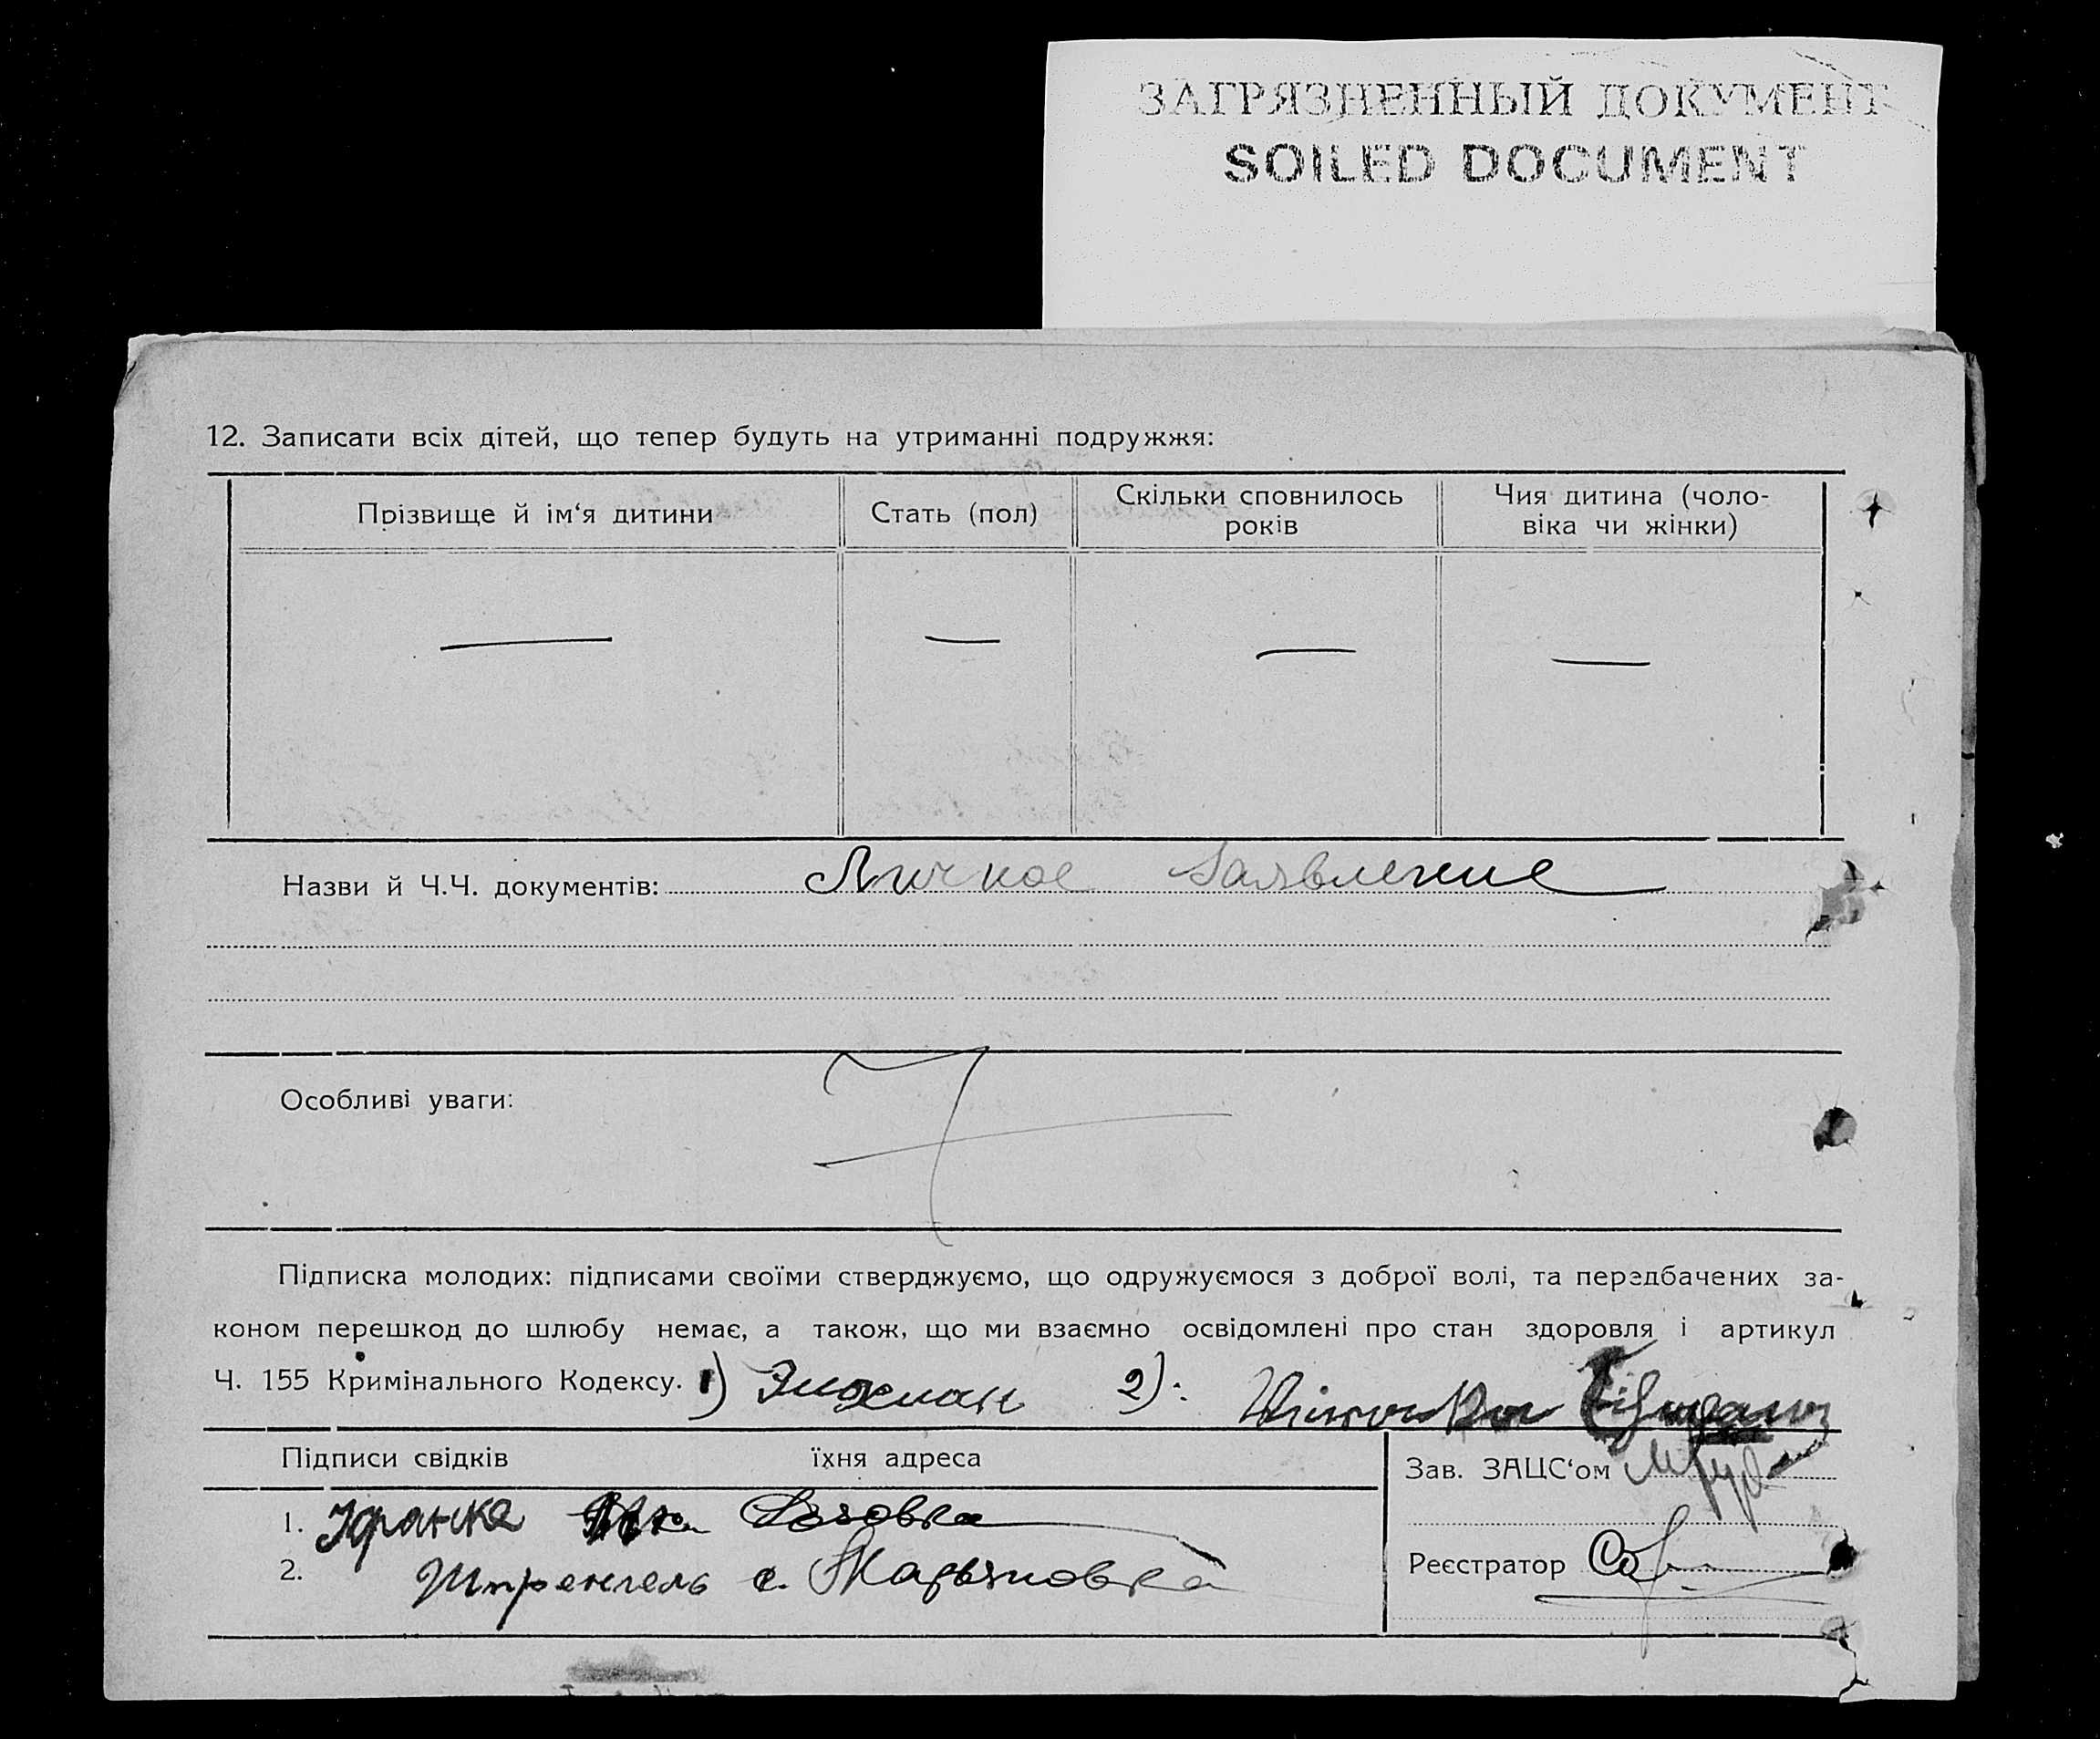 ЗАГРЯЗНЕННЫЙ ДОКУМЕНТ
SOILED DOCUMENT
12. Записати всіх дітей, що тепер будуть на утриманні подружжя:
Прізвище й ім‘я дитини
Стать (пол)
Скільки сповнилось
років
Чия дитина (чоло-
віка чи жінки)
Назви й Ч.Ч. документів: Личное заявление
Особливі уваги:
Підписка молодих: підписами своїми стверджуємо, що одружуємося з доброї волі, та передбачених за-
коном перешкод до шлюбу немає, а також, що ми взаємно освідомлені про стан здоровля і артикул
Ч. 155 Кримінального Кодексу. 1) 2):
Підписи свідків їхня адреса
Зав. ЗАЦС‘ом
1.
2. Штренгель с. Марьяновка
Реєстратор